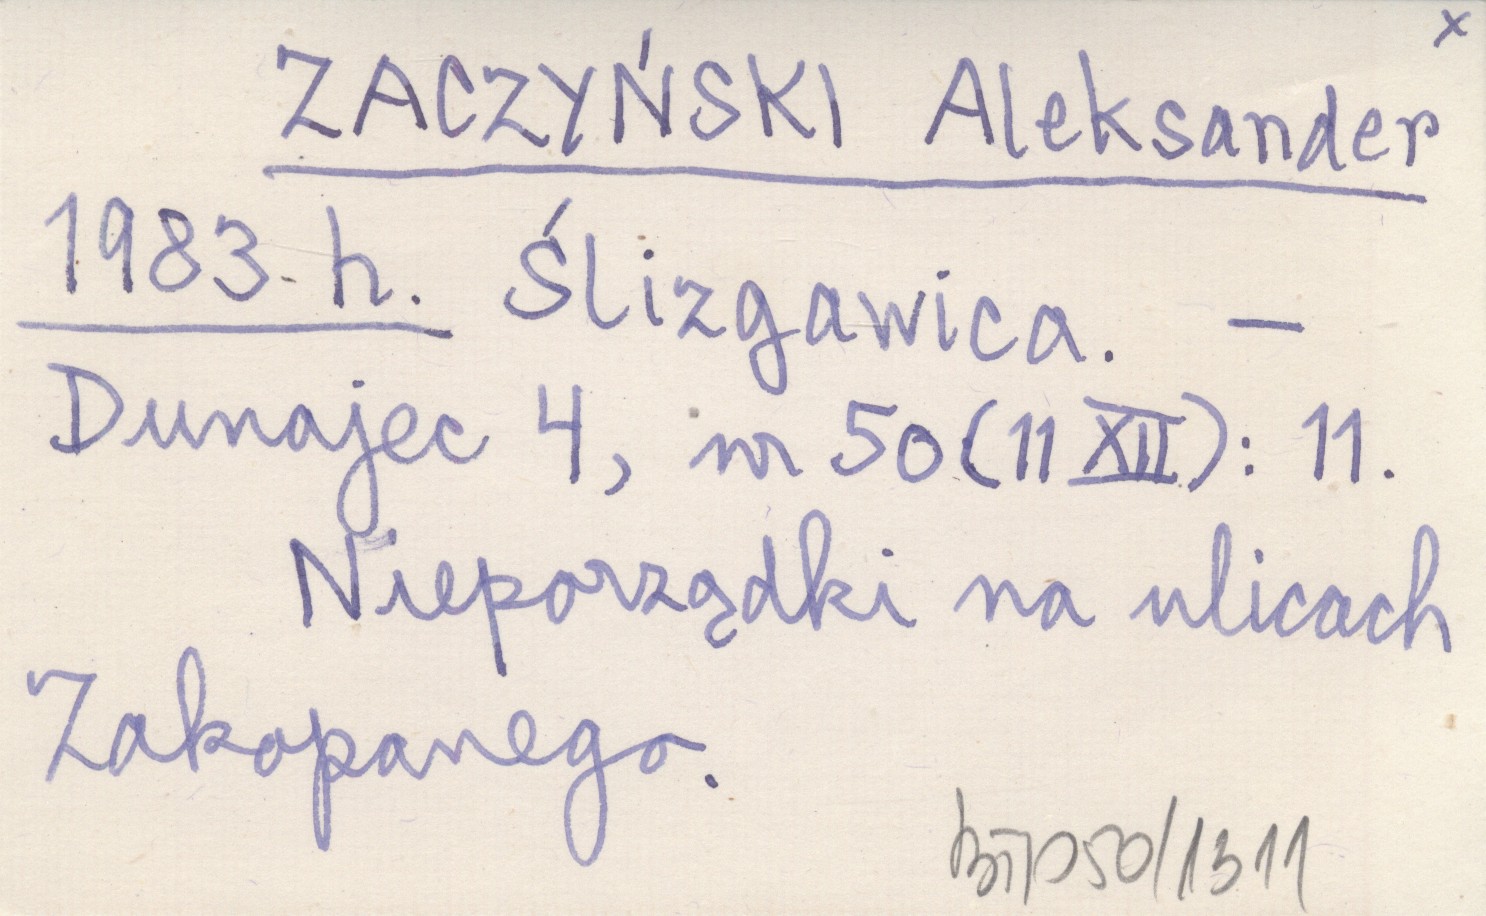 x
ZACZYŃSKI Aleksander
1983 h. Ślizgawica. —
Dunajec 4, nr 50 (11 XII): 11.
Nieporządki na ulicach
Zakopanego.